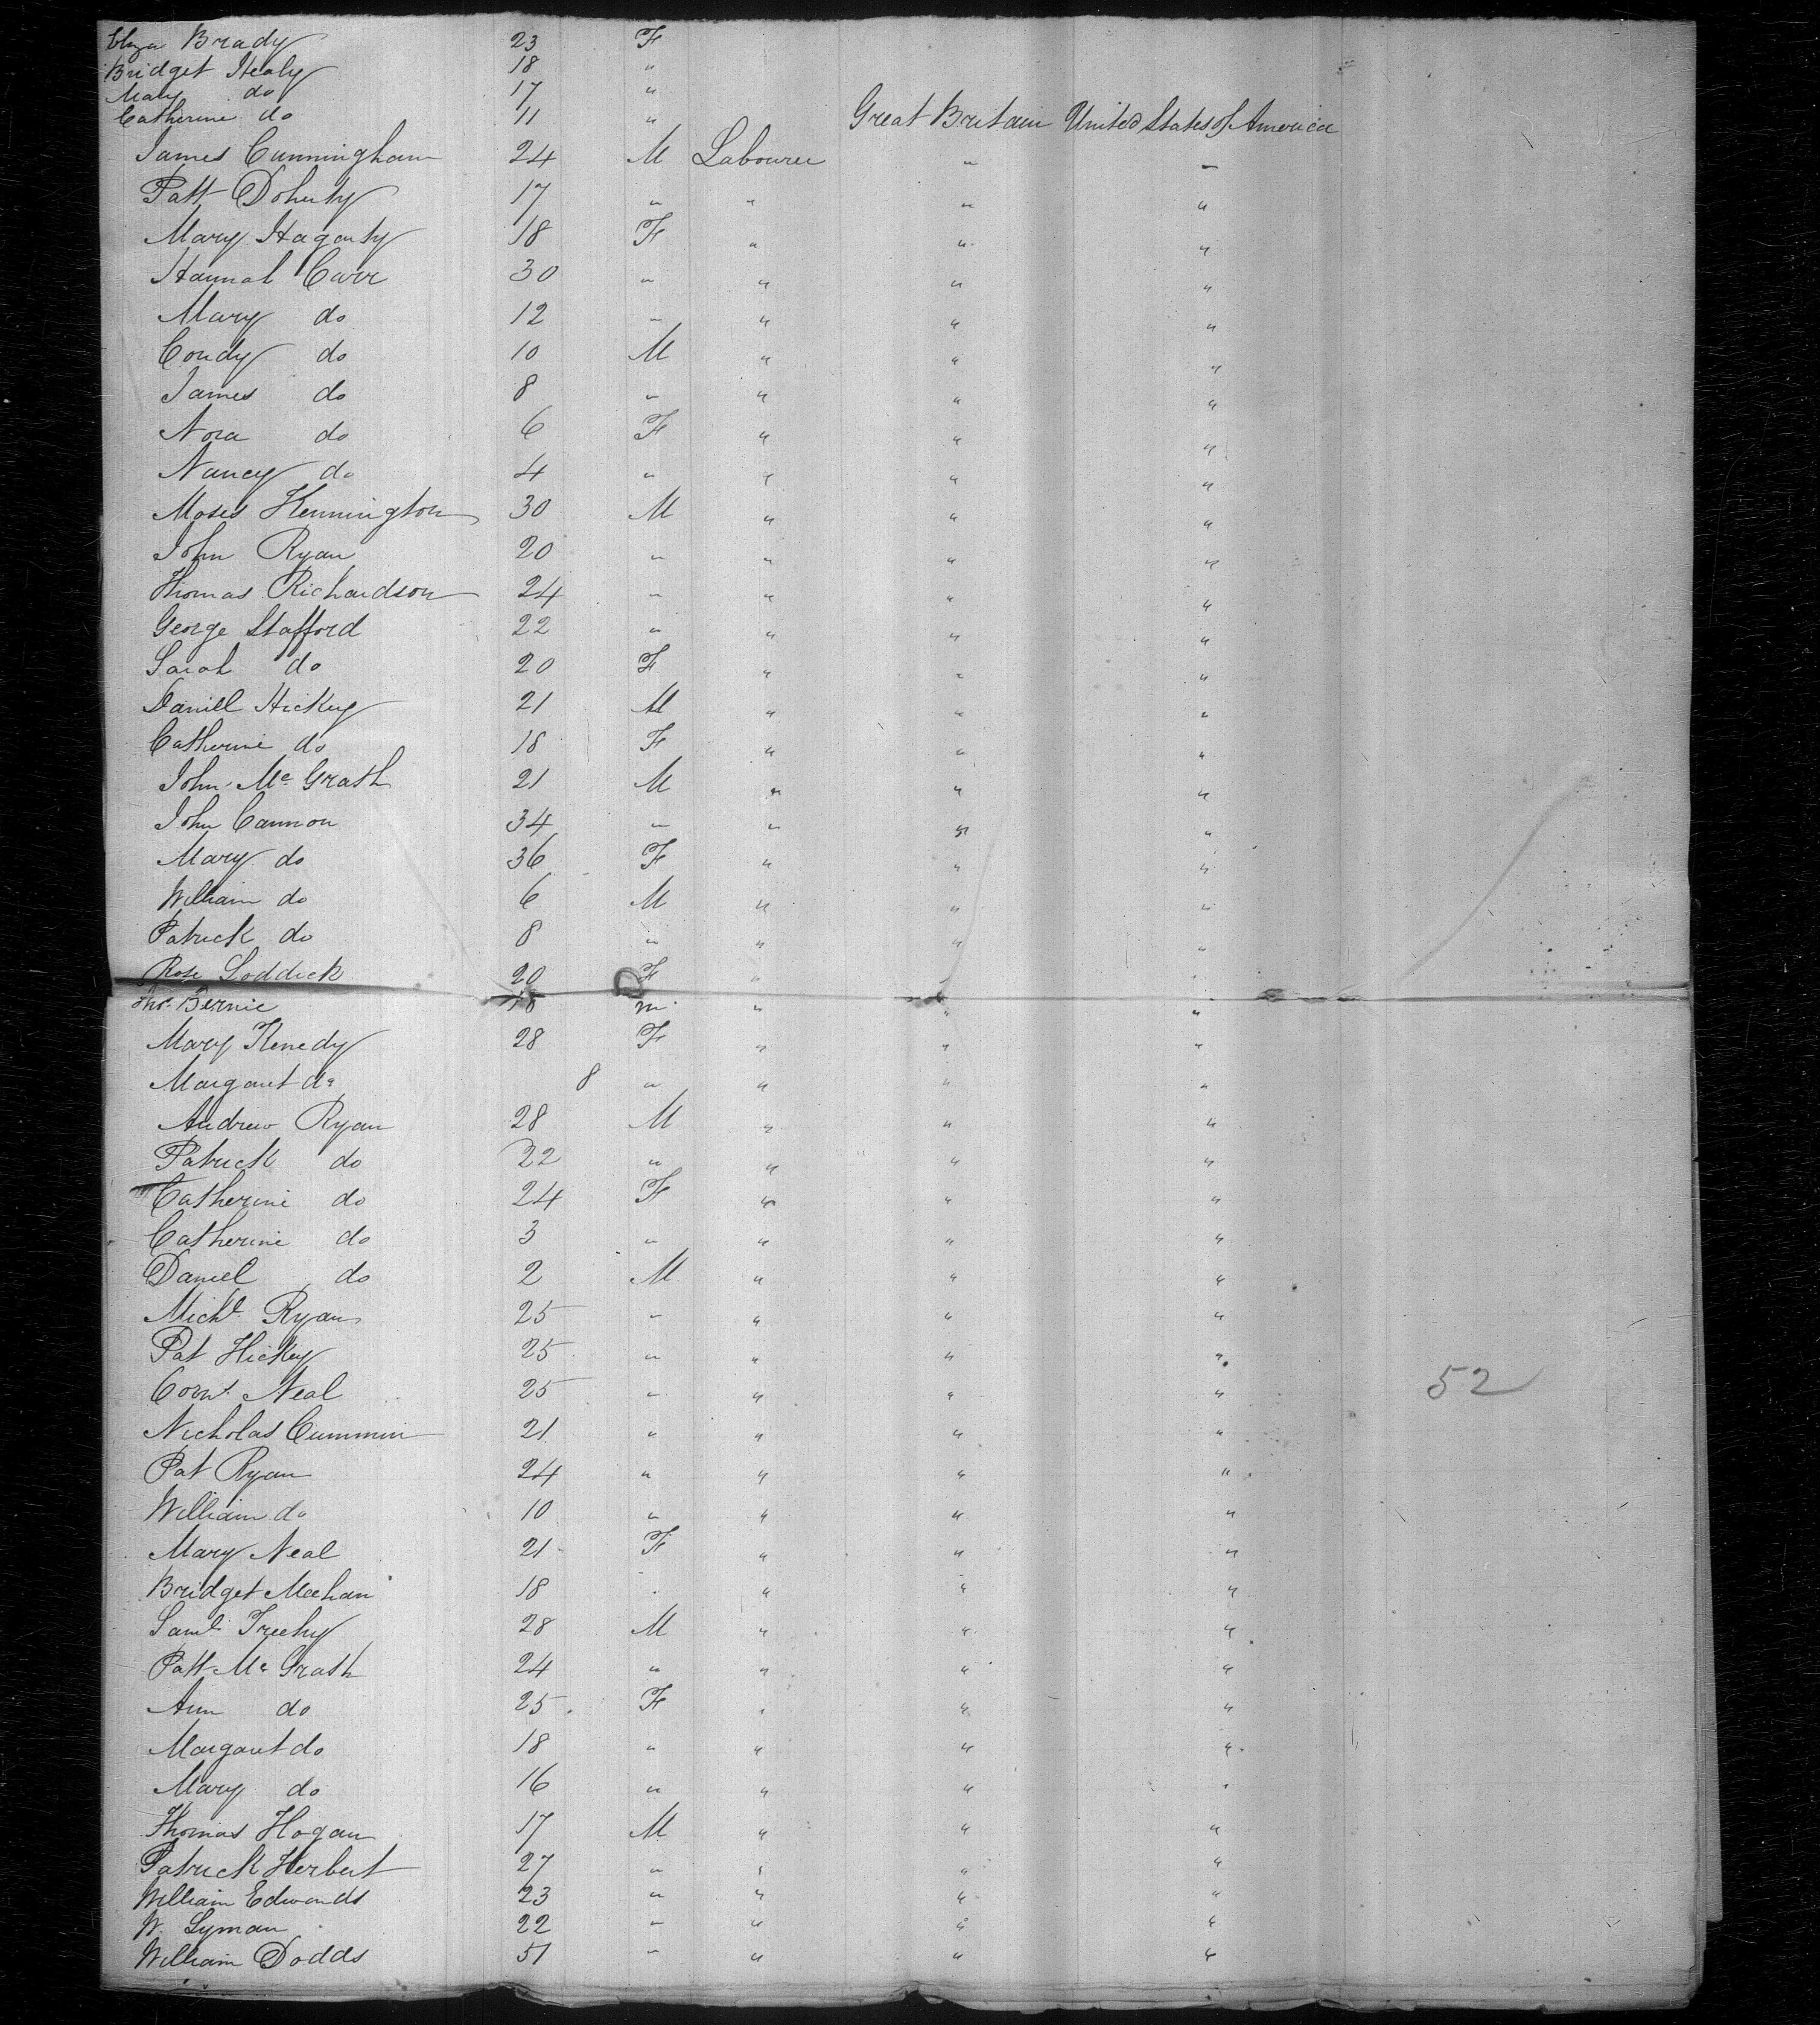 Eliza Brady 23 F
Bridget Healy 18 "
Mary do 17 "
Catherine do 11 " Great Britain United States of America
James Cunningham 24 M Labourer " "
Patt Doherty 17 " " " "
Mary Hagerty 18 F " " "
Hannah Carr 30 " " " "
Mary do 12 " " " "
Condy do 10 M " " "
James do 8 " " " "
Nora do 6 F " " "
Nancy do 4 " " " "
Moses Kennington 30 M " " "
John Ryan 20 " " " "
Thomas Richardson 24 " " " "
George Stafford 22 " " " "
Sarah do 20 F " " "
Daniell Hickey 21 M " " "
Catherine do 18 F " " "
John Mc Grath 21 M " " "
John Cannon 34 " " " "
Mary do 36 F " " "
William do 6 M " " "
Patrick do 8 " " " "
Rose Loddick 20 F " " "
Thos. Bernie 18 m " " "
Mary Kenedy 28 F " " "
Margaret do 8 " " " "
Andrew Ryan 28 M " " "
Patrick do 22 " " " "
Catherine do 24 F " " "
Catherine do 3 " " " "
Daniel do 2 M " " "
Michl Ryan 25 " " " "
Pat Hickey 25 " " " "
Corns. Neal 25 " " " " 52
Nicholas Cummin 21 " " " "
Pat Ryan 24 " " " "
William do 10 " " " "
Mary Neal 21 F " " "
Bridget Meehan 18 " " " "
Saml Treehy 28 M " " "
Patt Mc Grath 24 " " " "
Ann do 25 F " " "
Margaret do 18 " " " "
Mary do 16 " " " "
Thomas Hogan 17 M " " "
Patrick Herbert 27 " " " "
William Edwards 23 " " " "
W. Lyman 22 " " " "
William Dodds 51 " " " "